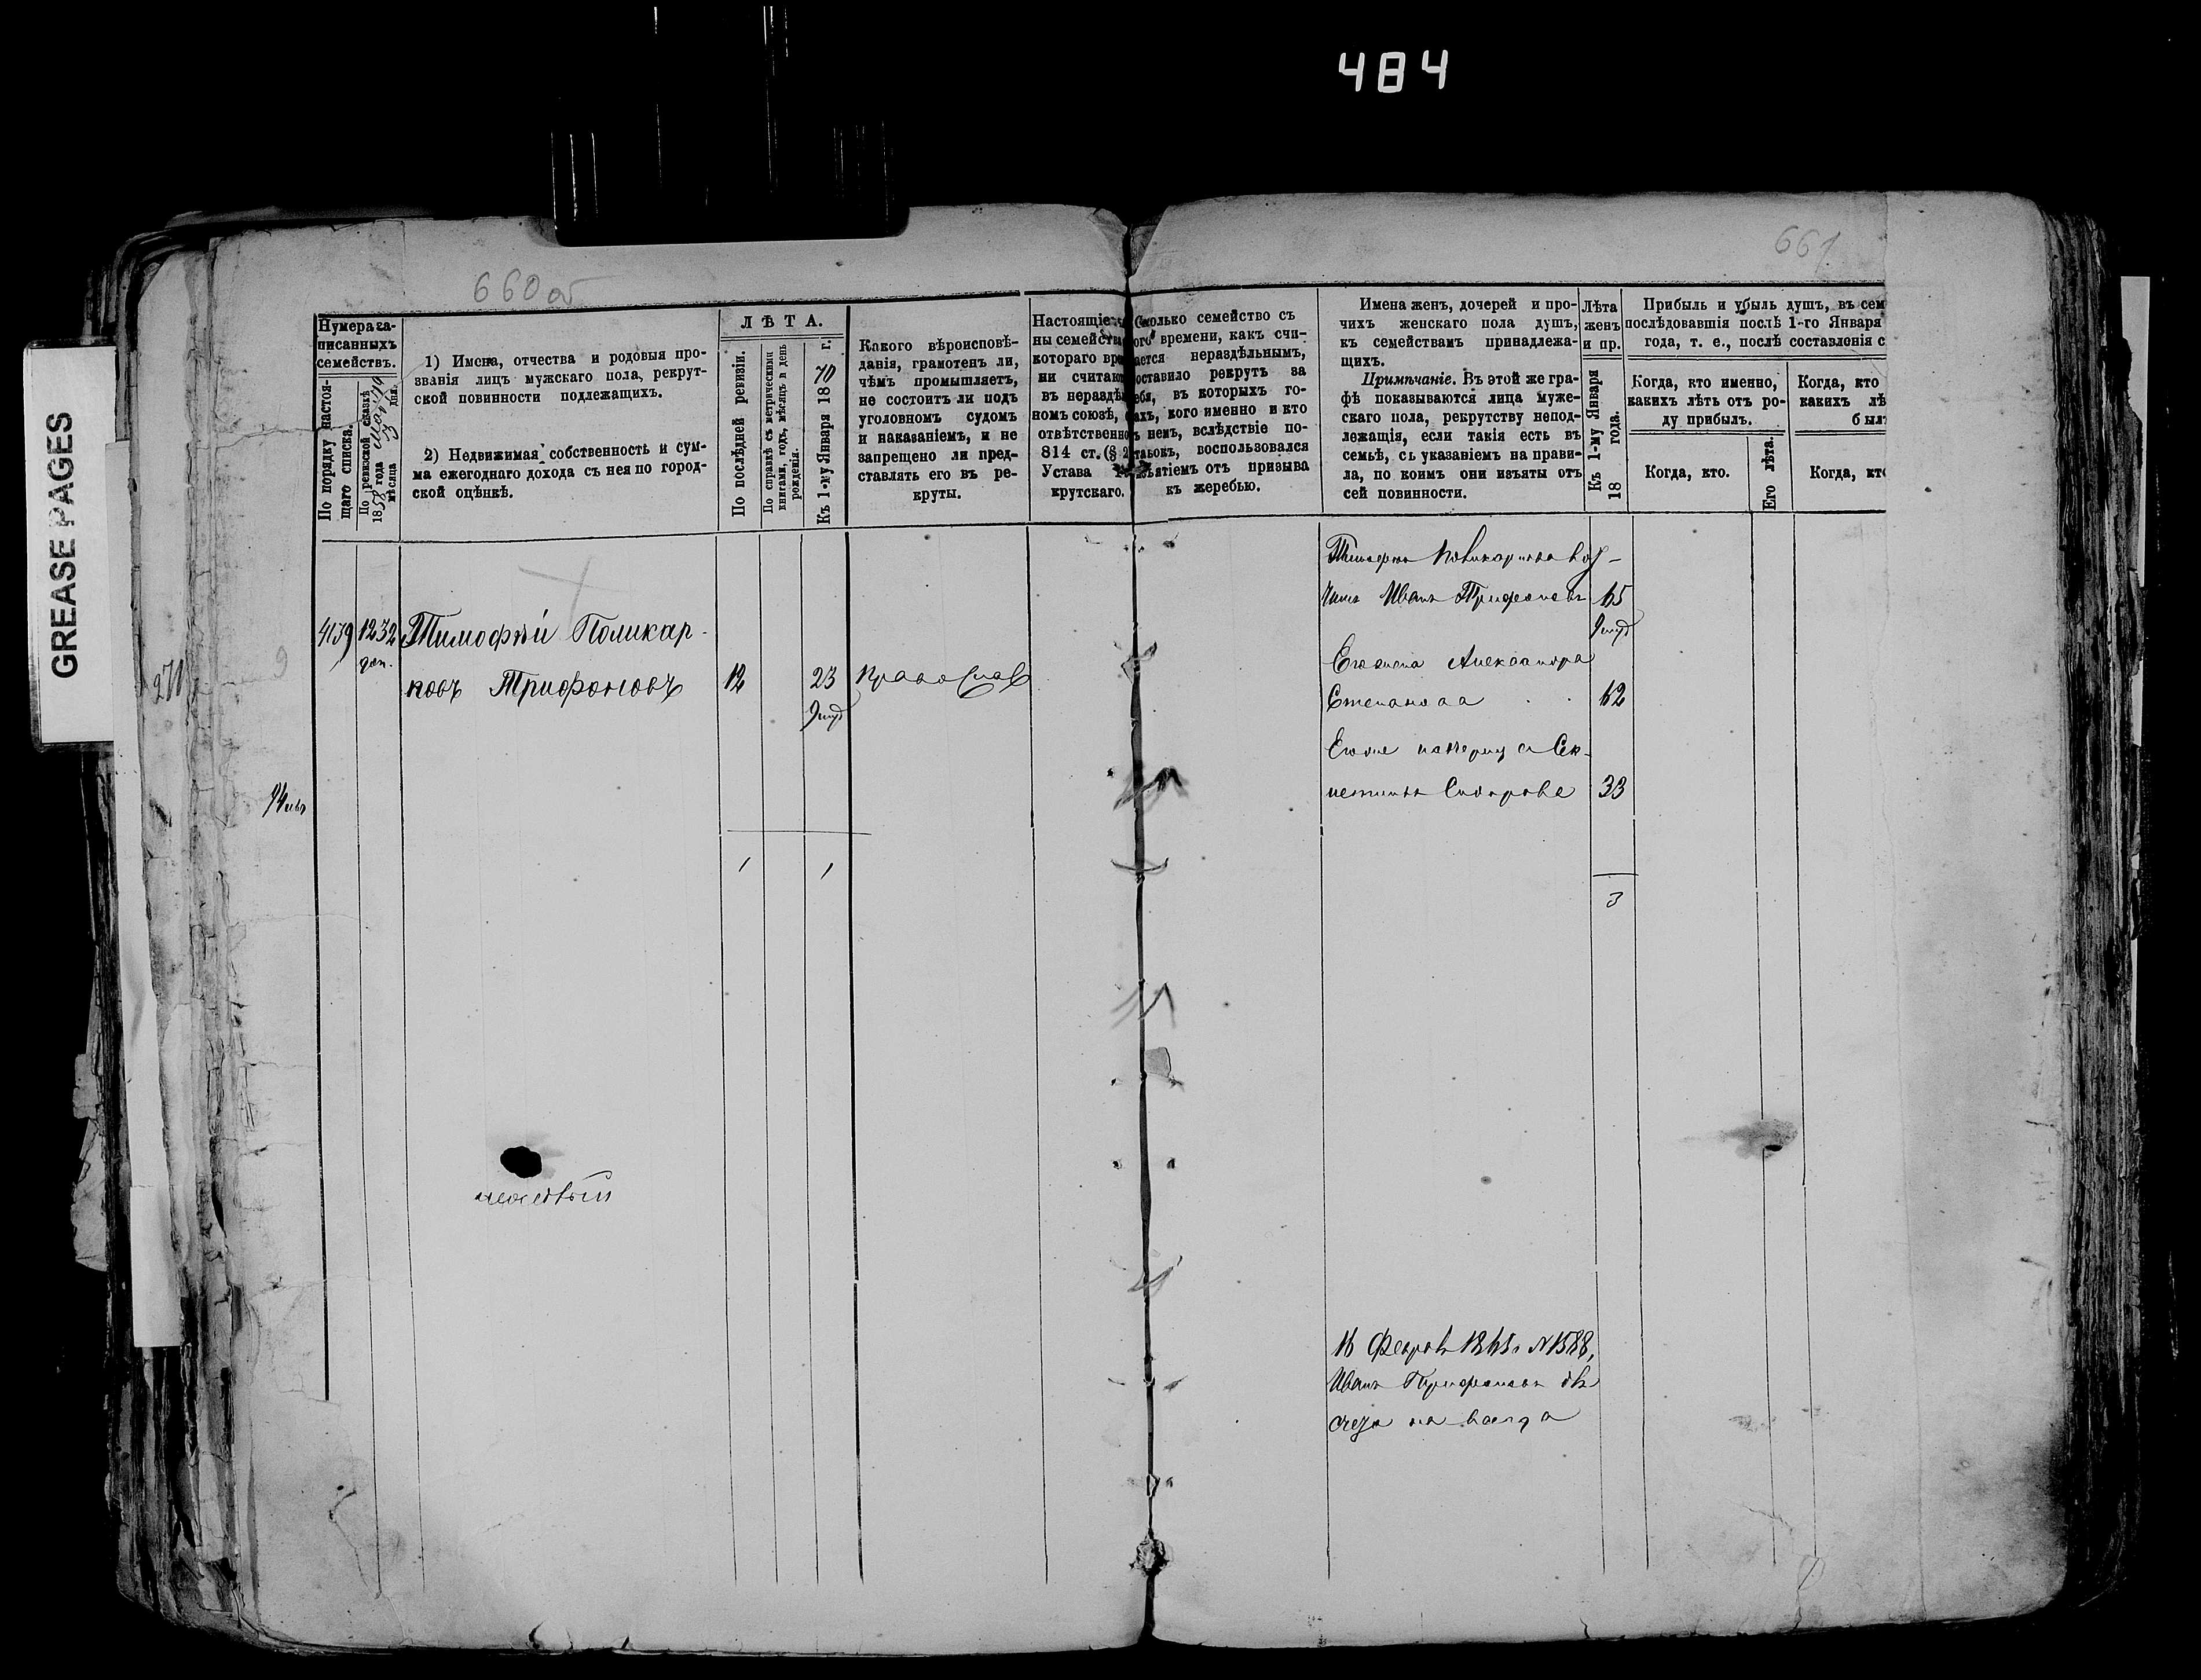 484
GREASE PAGES
660 об
661
Нумера за-
писанныхъ
семействъ.
По порядку настоя-
щаго списка.
По ревизской сказкѣ
1858 года
мѣсяца дня.
1) Имена, отчества и родовыя про-
званія лицъ мужскаго пола, рекрут-
ской повинности подлежащихъ.
2) Недвижимая собственность и сум-
ма ежегоднаго дохода съ нея по город-
ской оцѣнкѣ.
ЛѢТА.
По послѣдней ревизіи.
По справкѣ съ метрическими
книгами, годъ, мѣсяцъ и день
рожденія.
Къ 1-му Января 1870 г.
Какого вѣроисповѣ-
данія, грамотенъ ли,
чѣмъ промышляетъ,
не состоитъ ли подъ
уголовномъ судомъ
и наказаніемъ, и не
запрещено ли пред-
ставлять его въ ре-
круты.
Настоящіе
ны семейства
котораго вре
ни считаю
въ нераздѣ
номъ союзѣ,
отвѣтственно
814 ст. (§
Устава
крутскаго.
Сколько семейство съ
ого времени, какъ счи-
тается нераздѣльнымъ,
оставило рекрутъ за
себя, въ которыхъ го-
дахъ, кого именно и кто
въ немъ, вслѣдствіе по-
, воспользовался
изъятіемъ отъ призыва
къ жеребью.
Имена женъ, дочерей и про-
чихъ женскаго пола душъ,
къ семействамъ принадлежа-
щихъ.
Примѣчаніе. Въ этой же гра-
фѣ показываются лица муже-
скаго пола, рекрутству непод-
лежащія, если такія есть въ
семьѣ, съ указаніемъ на прави-
ла, по коимъ они изъяты отъ
сей повинности.
Лѣта
женъ
и пр.
Къ 1-му Января
18 года.
Прибыль и убыль душъ, въ сем
послѣдовавшія послѣ 1-го Января
года, т. е., послѣ составленія с
Когда, кто именно,
какихъ лѣтъ отъ ро-
ду прибылъ.
Когда, кто
какихъ лѣ
был
Когда, кто.
Его лѣта.
Когда, кто
4139 1232 Тимофѣй Поликар-
доп.
повъ Трифоновъ 12 23 Православ
1 1
Иванъ Трифоновъ 65
Его жена Александра
Степанова 62
Сидорова 33
3
16 Феврал 1865 г №1588,
Иванъ Трифоновъ